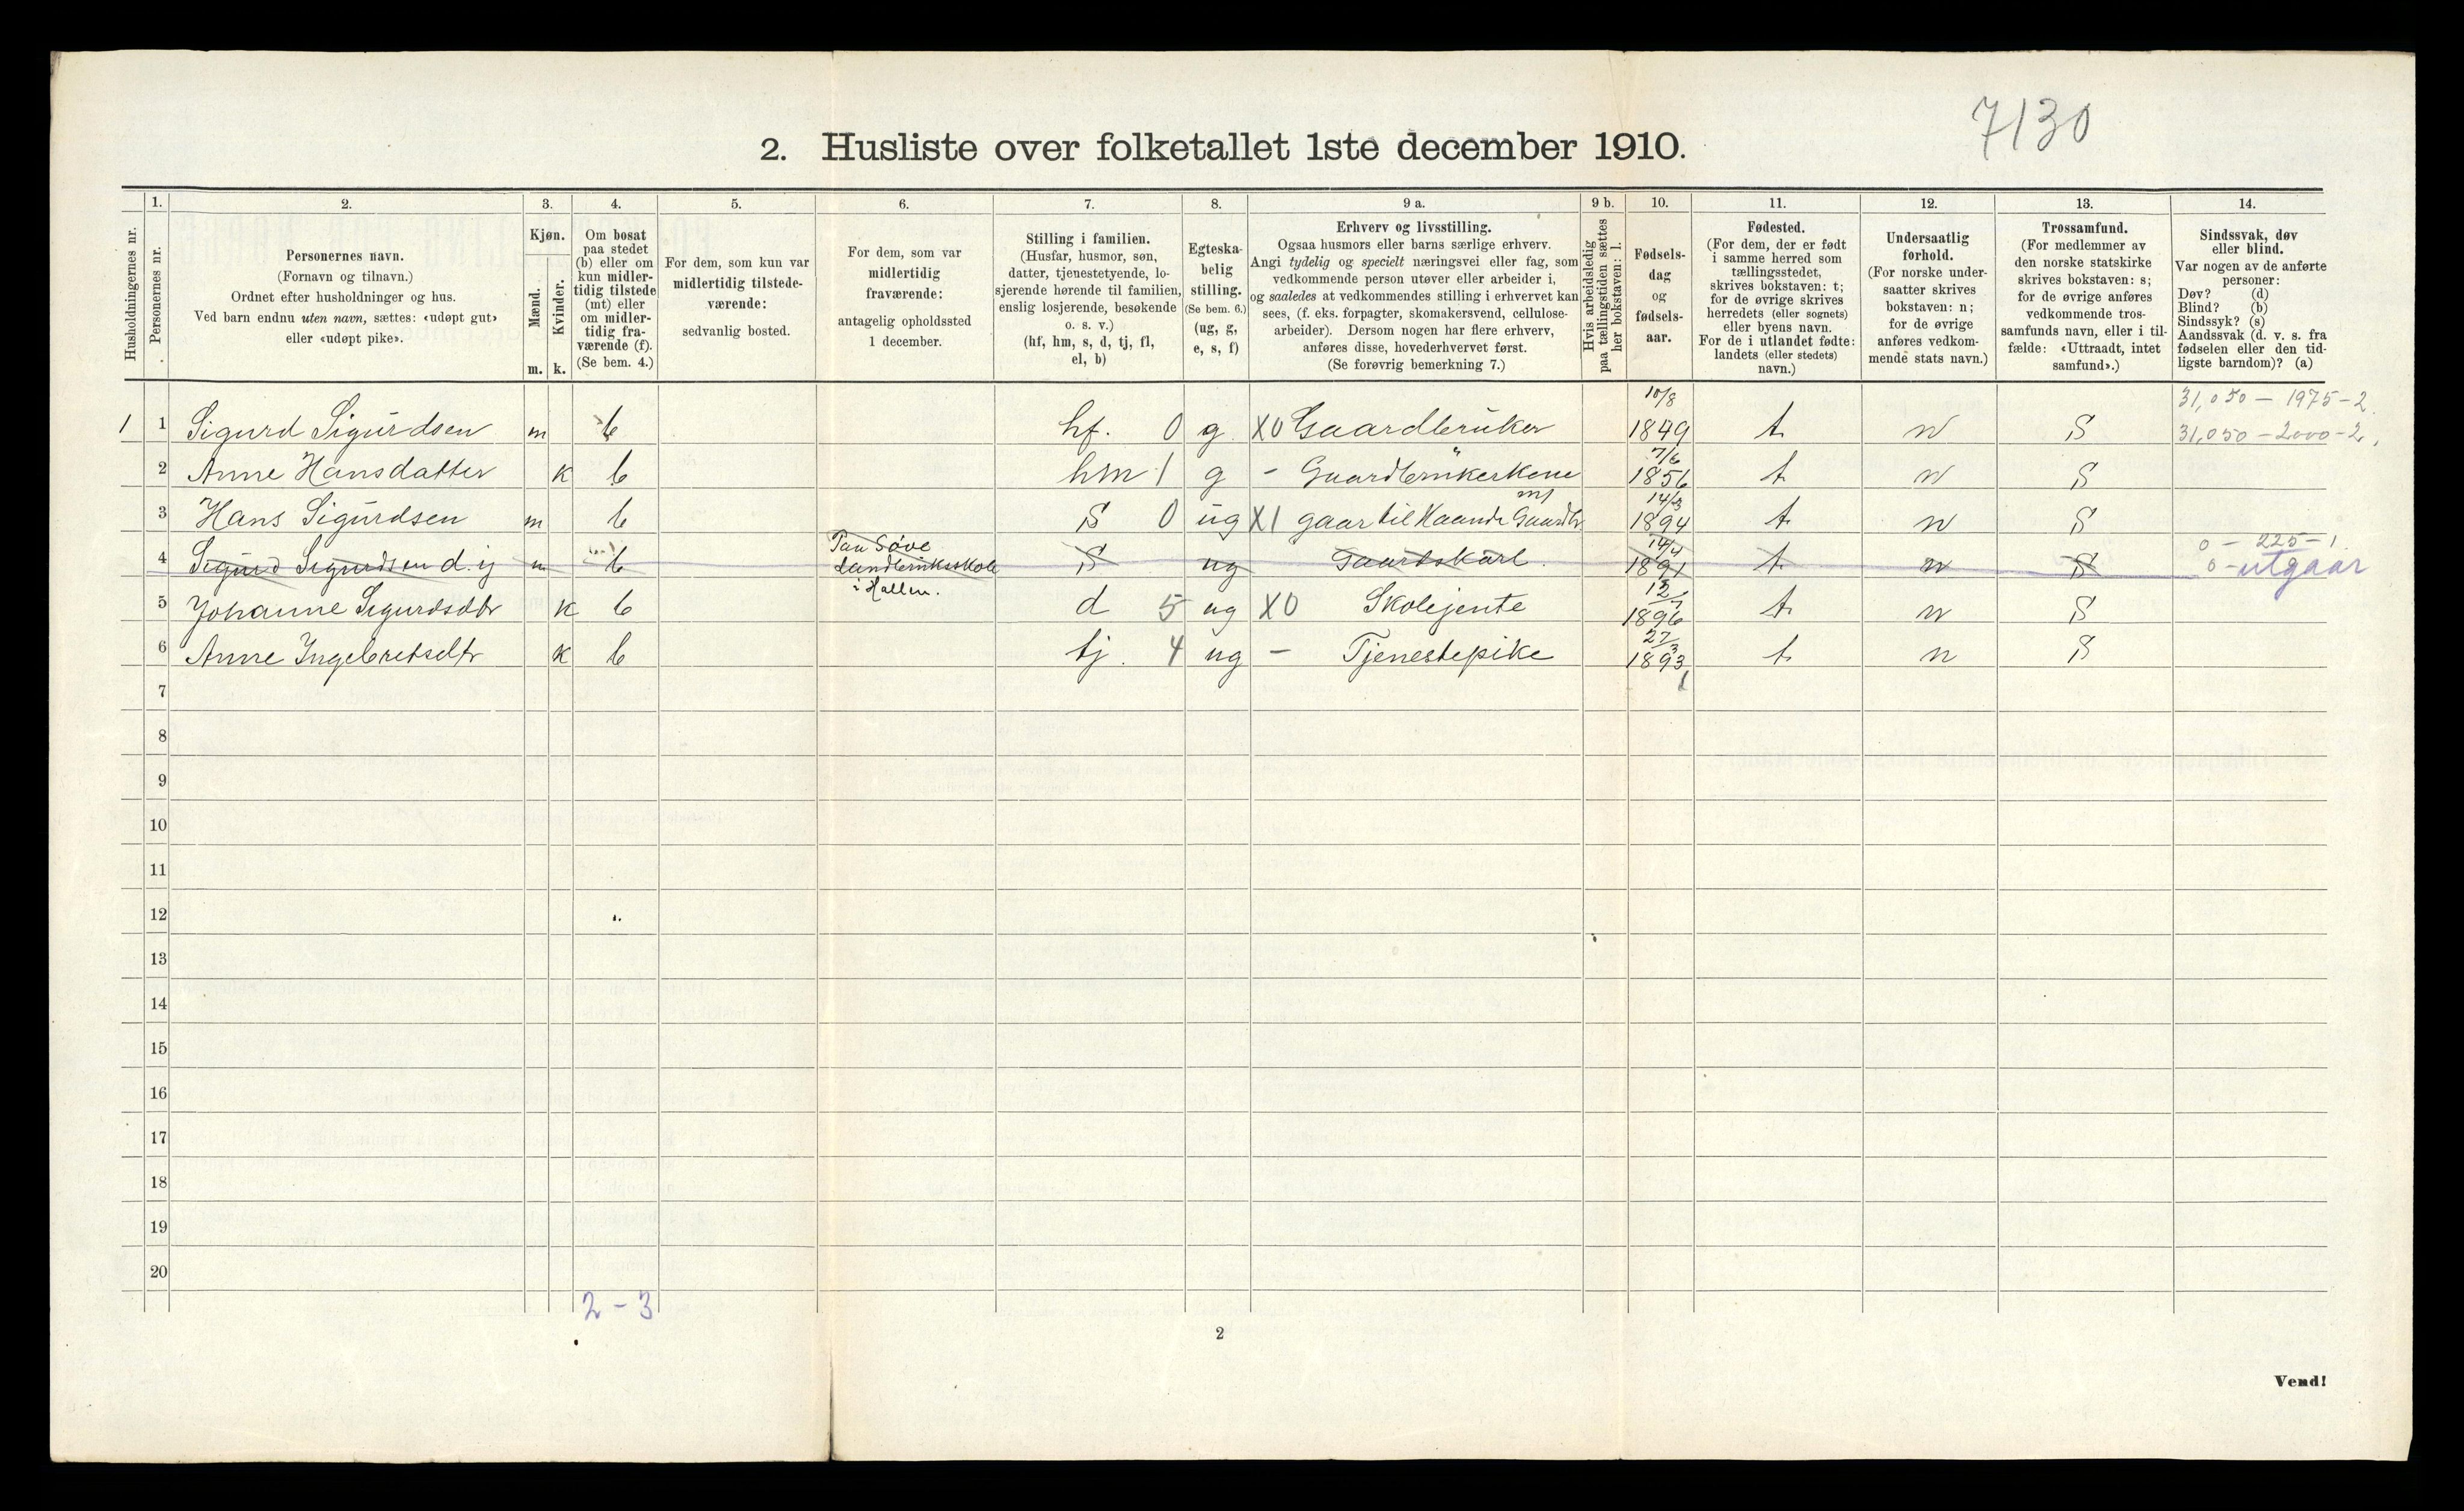 7130
2. Husliste over folketallet 1ste december 1910.
Husholdningernes nr.
1.
Personernes nr.
2.
Personernes navn.
(Fornavn og tilnavn.)
Ordnet efter husholdninger og hus.
Ved barn endnu uten navn, sættes: «udøpt gut»
eller «udøpt pike».
3.
Kjøn.
Mænd.
Kvinder.
m. k.
4.
Om bosat
paa stedet
(b) eller om
kun midler-
tidig tilstede
(mt) eller
om midler-
tidig fra-
værende (f).
(Se bem. 4.)
5.
For dem, som kun var
midlertidig tilstede-
værende:
sedvanlig bosted.
6.
For dem, som var
midlertidig
fraværende:
antagelig opholdssted
1 december.
7.
Stilling i familien.
(Husfar, husmor, søn,
datter, tjenestetyende, lo-
sjerende hørende til familien,
enslig losjerende, besøkende
o. s. v.)
(hf, hm, s, d, tj, fl,
el, b)
8.
Egteska-
belig
stilling.
(Se bem. 6.)
(ug, g,
e, s, f)
9 a.
Erhverv og livsstilling.
Ogsaa husmors eller barns særlige erhverv.
Angi tydelig og specielt næringsvei eller fag, som
vedkommende person utøver eller arbeider i,
og saaledes at vedkommendes stilling i erhvervet kan
sees, (f. eks. forpagter, skomakersvend, cellulose-
arbeider). Dersom nogen har flere erhverv,
anføres disse, hovederhvervet først.
(Se forøvrig bemerkning 7.)
9 b.
Hvis arbeidsledig
paa tællingstiden sættes
her bokstaven: l.
10.
Fødsels-
dag
og
fødsels-
aar.
11.
Fødested.
(For dem, der er født
i samme herred som
tællingsstedet,
skrives bokstaven: t;
for de øvrige skrives
herredets (eller sognets)
eller byens navn.
For de i utlandet fødte:
landets (eller stedets)
navn.)
12.
Undersaatlig
forhold.
(For norske under-
saatter skrives
bokstaven: n;
for de øvrige
anføres vedkom-
mende stats navn.)
13.
Trossamfund.
(For medlemmer av
den norske statskirke
skrives bokstaven: s;
for de øvrige anføres
vedkommende tros-
samfunds navn, eller i til-
fælde: «Uttraadt, intet
samfund».)
14.
Sindssvak, døv
eller blind.
Var nogen av de anførte
personer:
Døv? (d)
Blind? (b)
Sindssyk? (s)
Aandssvak (d. v. s. fra
fødselen eller den tid-
ligste barndom)? (a)
10/8 31,050 - 1975-2
1 1 Sigurd Sigurdsen m b hf. 0 g X0 Gaardbruker 1849 t n S 31,050-2000-2,
7/6
2 Anne Hansdatter k b hm 1 g - Gaardbrukerkone 1856 t n S
14/3
3 Hans Sigurdsen m b S 0 ug X1 gaar til Haande Gaardbr 1894 t n S
Paa Søve 14/4 0 - 225-1
4 Sigurd Sigurdsen d. y m b Landbruksskole S ug Gaardskarl. 1891 t n S 0 - utgaar
i Hollen. 12/7
5 Johanne Sigurdsdtr k b d 5 ug X0 Skolejente 1896 t n S
27/3
6 Anne Ingebretsdtr k b tj. 4 ug - Tjenestepike 1893 t n S
7
8
9
10
11
12
13
14
15
16
17
18
19
20
2-3
2
Vend!